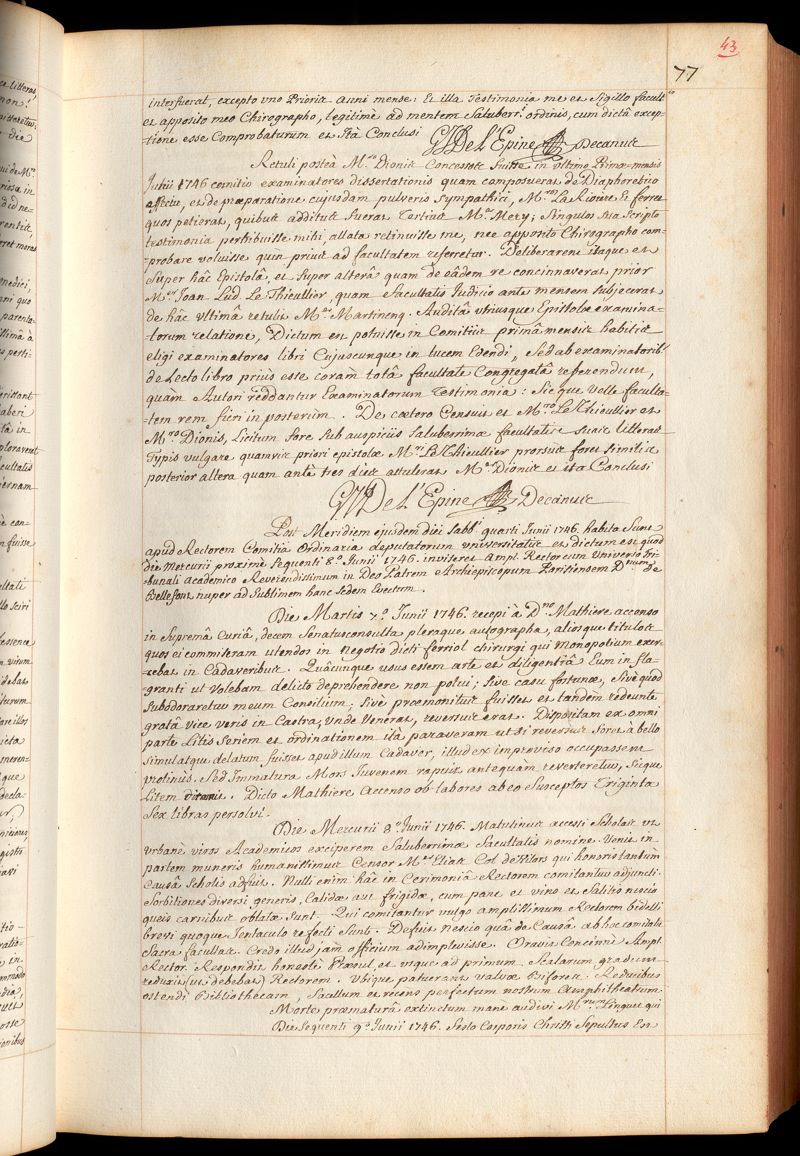 43
77
interfuerat, excepto uno Prioris anni mense: Et illa Testimonia me et Sigillo facult^is
et apposito meo Chirographo, legitimè ad mentem Saluberr^i ordinis, cum dictâ excep-
-tione esse Comprobaturum et Ità Conclusi
G J De L'Epine Decanus
Retuli posteà M^ro Dionis Concessos fuisse in ultimo Primæ mensis
Junii 1746 comitio examinatores dissertationis quam composuerat de Diaphoretico
affectu, et de præparatione cujusdam pulveris Sympathici, M^ros La Riviere Et ferret
quos petierat, quibus additus fuerat Tertius M^er Mery; Singulos sua Scripto
testimonia perhibuisse mihi, allata retinuisse me, nec apposito Chirographo com-
-probare voluisse quin priùs ad facultatem referretur. Deliberarent itaque et
Super hâc Epistolâ, et Super alterâ quam de eâdem re concinnaverat prior
M^er Joan Lud Le Thieullier, quam facultatis Judicio ante mensem subjecerat
de hâc ultimâ retulit M^er Martinenq. Auditâ utriusque Epistolæ examina-
-torum relatione, Dictum est potuisse in Comitiis primâ mensis habitis
eligi examinatores libri Cujuscunque in lucem Edendi, Sed ab examinatorib^s
de Lecto libro priùs esse coràm totâ facultate Congregatâ referendum,
quàm Autori reddantur Examinatorum Testimonia: Sicque velle faculta-
-tem rem fieri in posterùm. De cætero Censuit et M^ro Le Thieullier et
M^ro Dionis, Licitum fore Sub auspiciis Saluberrimæ facultatis suas litteras
Typis vulgare quamvis priori epistolæ M^ri Le Thieullier prorsùs foret similis
posterior altera quam antè tres dies attulerat M^er Dionis et ita Conclusi
G J De L'Epine Decanus
Post Meridiem ejusdem diei Sabb^i quarti Junii 1746 habita Sunt
apud Rectorem Comitia Ordinaria deputatorum universitatis et dictum est quod
die Mercurii proximè Sequenti 8^a Junii 1746. inviteret Ampl. Rector cum Universo Tri-
bunali Academico Reverendissimum in Deo Patrem Archiepiscopum Parisiensem D^num de
Bellefont nuper ad Sublimem hanc Sedem Evectum.
Die Martis 7^a Junii 1746. recepi à D^no Mathiere accenso
in Supremâ Curiâ, decem Senatusconsulta pleraque autographa, aliosque titulos
quos ei commiseram utendos in negotio dicti ferriol chirurgi qui monopolium exer-
-cebat in Cadaveribus. Quâcunque usus essem arte et diligentiâ Eum in fla-
granti ut Volebam delicto deprehendere non potui; Sive casu fortunæ, Sivè quod
Subodoraretur meum Consilium; Sivè præmonitus fuisset et tandem redeunte
gratâ vice veris in Castra, unde Venerat, reversus erat. Dispositam ex omni
parte Litis Seriem et ordinationem ità paraveram ut si reversus foret à bello
simulatque delatum fuisset apud illum Cadaver, illud ex improviso occupassem
. Sed Immatura Mors Juvenem rapuit antequàm reverteretur, Sicque
Litem . Dicto Mathiere Accenso ob labores ab eo Susceptos Triginta
Sex libras persolvi.
Die Mercurii 8^a Junii 1746. Matutinus accessi Scholas ut
urbanè viros Academicos exciperem Saluberrimæ facultatis nomine. Venit in
partem muneris humanissimus Censor M^er Elias Col de Vilars qui honoris tantùm
Causâ Scholis adfuit. Nulli enim hâc in Cerimoniâ Rectorem comitantur adjuncti.
Sorbitiones diversi generis, Calidæ aut frigidæ, cum pane et vino et salitis nescio
queis carnibus oblatæ Sunt. Qui comitantur vulgo amplissimum Rectorem bidelli
brevi quoque Jentaculo refecti Sunt. Defuit nescio quâ de Causâ ab hoc comitatu
Sacra facultas. Credo illud jàm officium adimplevisse. Oravit Concinnè Ampl.
Rector. Respondit honestè Præsul, et usque ad primum Scalarum gradum
reduxit (ut debebat) Rectorem. Ubique patuerant valvæ Bifores. Reducibus
ostendi Bibliothecam, Sacellum et recens perfectum nostrum Amphitheatrum.
Morte præmaturâ extinctum mane audivi M^rum Linguet qui
Die Sequenti 9^a Junii 1746. Festo Corporis Christi Sepultus Est